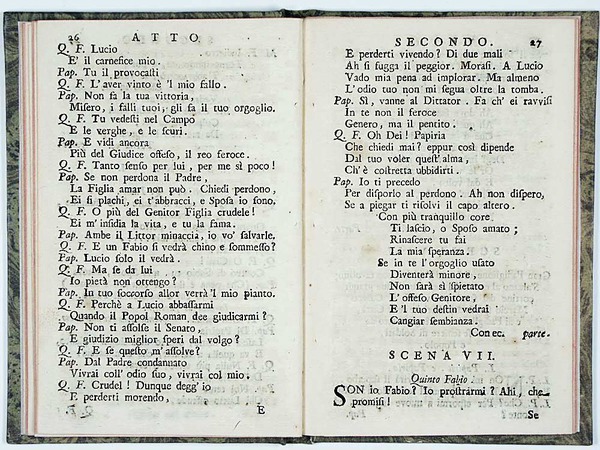 26 ATTO
Q. F. Lucio
E' il carnefice mio.
Pap. Tu il provocasti
Q. F. L' aver vinto è 'l mio fallo.
Pap. Non fa la tua vittoria,
Misero, i falli tuoi, gli fa il tuo orgoglio.
Q. F. Tu vedesti nel Campo
E le verghe, e le scuri.
Pap. E vidi ancora
Più del Giudice offeso, il reo feroce.
Q. F. Tanto senso per lui, per me sì poco!
Pap. Se non perdona il Padre,
La Figlia amar non può. Chiedi perdono,
Ei si plachi, ei t'abbracci, e Sposa io sono.
Q. F. O più del Genitor Figlia crudele!
Ei m' insidia la vita, e tu la fama.
Pap. Ambe il Littor minaccia, io vo' salvarle.
Q. F. E un Fabio si vedrà chino e sommesso?
Pap. Lucio solo il vedrà.
Q. F. Ma se da lui
Io pietà non ottengo?
Pap. In tuo soccorso allor verrà 'l mio pianto.
Q. F. Perchè a Lucio abbassarmi
Quando il Popol Roman dee giudicarmi?
Pap. Non ti assolse il Senato,
E giudizio miglior speri dal volgo?
Q. F. E se questo m' assolve?
Pap. Dal Padre condannato
Vivrai coll' odio suo, vivrai col mio.
Q. F. Crudel! Dunque degg' io
E perderti morendo,
E
SECONDO. 27
E perderti vivendo? Di due mali
Ah si fugga il peggior. Morasi. A Lucio
Vado mia pena ad implorar. Ma almeno
L' odio tuo non mi segua oltre la tomba.
Pap. Sì, vanne al Dittator. Fa ch' ei ravvisi
In te non il feroce
Genero, ma il pentito.
Q. F. Oh Dei! Papiria
Che chiedi mai? eppur così dipende
Dal tuo voler quest' alma,
Ch' è costretta ubbidirti.
Pap. Io ti precedo
Per disporlo al perdono. Ah non dispero,
Se a piegar ti risolvi il capo altero.
Con più tranquillo core
Ti lascio, o Sposo amato;
Rinascere tu fai
La mia speranza.
Se in te l' orgoglio usato
Diventerà minore,
Non sarà sì spietato
L' offeso Genitore,
E 'l tuo destin vedrai
Cangiar sembianza.
Con ec. parte.
SCENA VII.
Quinto Fabio.
SON io Fabio? Io prostrarmi? Ahi, che
promisi!
Se